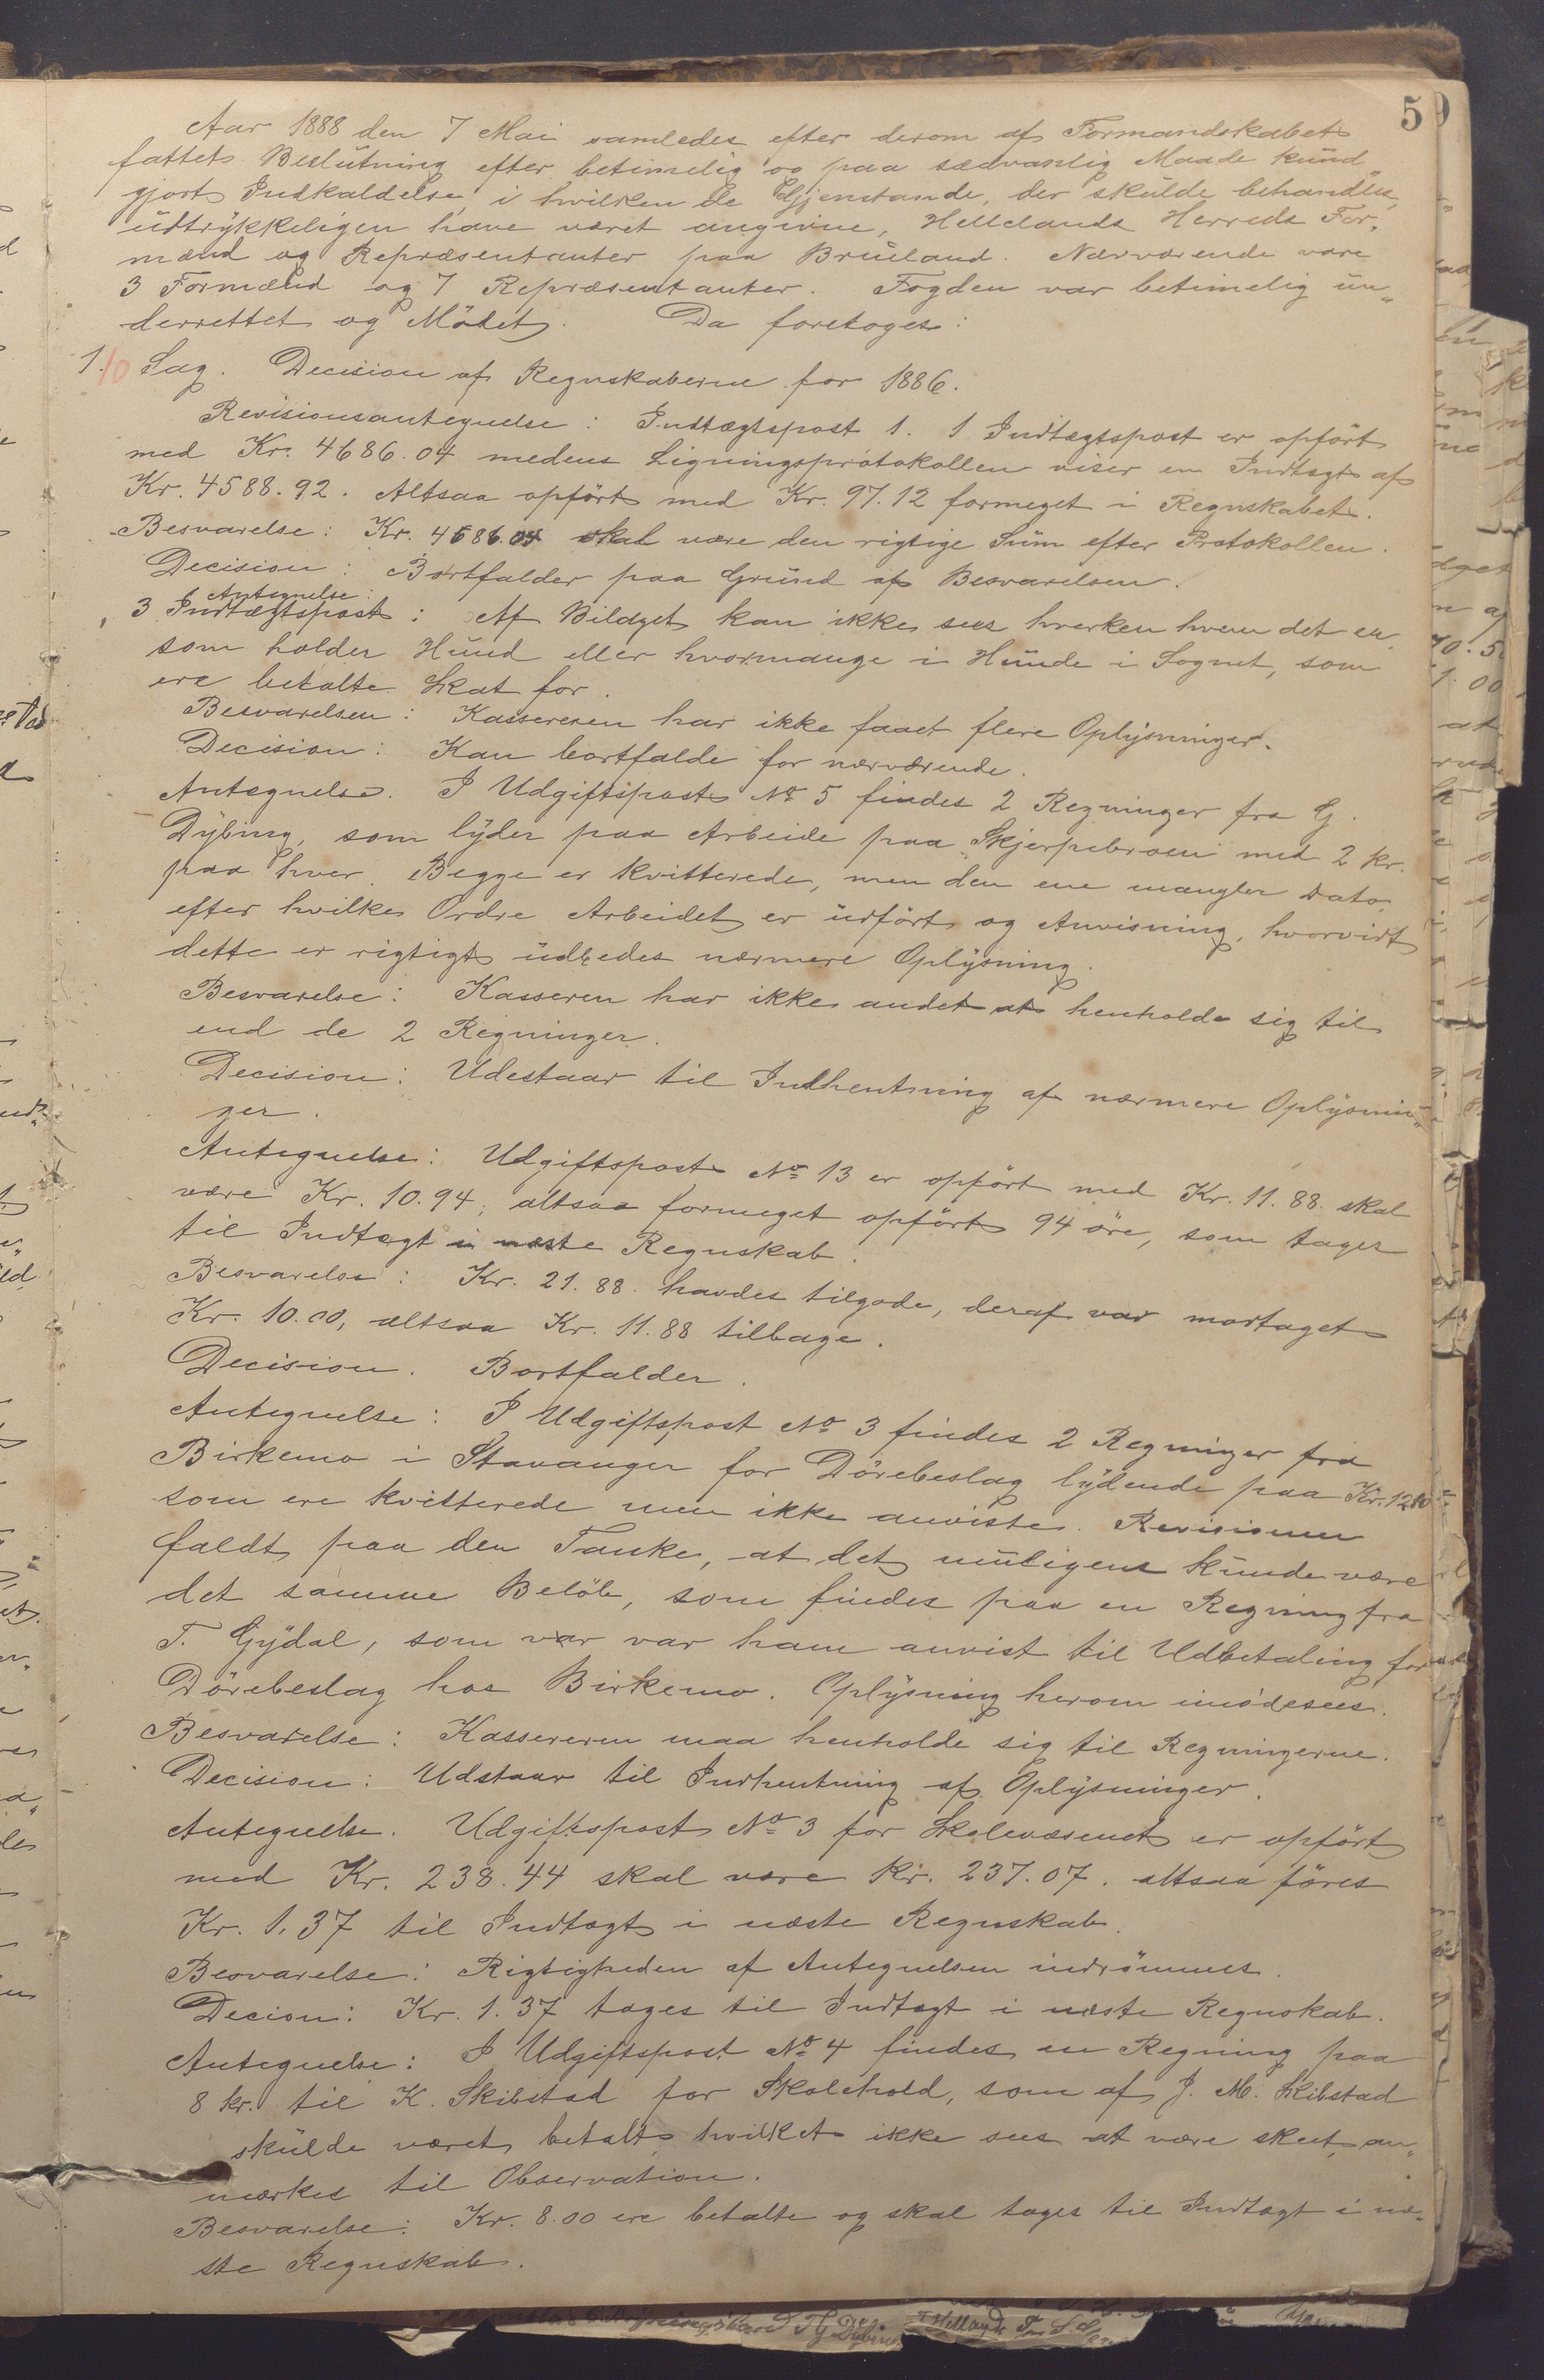 59
Aar 1888 den 7 Mai samledes efter derom af Formandskabet
fattet Beslutning efter betimelig og paa sædvanlig Maade kund„
gjort Indkaldelse, i hvilken de Gjenstande, der skulde behandles,
udtrykkeligen have været angivne, Hellelands Herreds For„
mænd og Repræsentanter paa Bruland. Nærværende vare
3 Formænd og 7 Repræsentanter. Fogden var betimelig un„
derrettet og Mödet. Da foretoges:
1. 10 Sag. Decision af Regnskaberne for 1886.
Revisionsantegnelse: Indtægtspost 1. 1 Indtægtspost er opfört
med Kr. 4686.04 medens Ligningsprotokollen viser en Indtægt af
Kr. 4588.92. Altsaa opfört med Kr. 97.12 formeget i Regnskabet.
Besvarelse: Kr. 4686.04 skal være den rigtige Sum efter Protokollen.
Decision: Bortfalder paa Grund af Besvarelsen.
Antegnelse:
3 Indtægtspost: Af Bilaget kan ikke sees hverken hvem det er,
som holder Hund eller hvormange i Hunde i Sognet, som
ere betalte Skat for.
Besvarelsen: Kassereren har ikke faaet flere Oplysninger.
Decision: Kan bortfalde for nærværende.
Antegnelse. I Udgiftspost No 5 findes 2 Regninger fra G.
Dybing, som lyder paa Arbeide paa Skjerpebroen med 2 kr.
paa hver. Begge er kvitterede, men den ene mangler Dato,
efter hvilke Ordre Arbeidet er udfört og Anvisning, hvorvidt
dette er rigtigt udbedes nærmere Oplysning.
Besvarelse: Kasseren har ikke andet at henholde sig til
end de 2 Regninger.
Decision: Udestaar til Indhentning af nærmere Oplysnin„
ger.
Antegnelse: Udgiftspost No 13 er opfört med Kr. 11.88. skal
være Kr. 10.94; altsaa formeget opfört 94 öre, som tages
til Indtægt i næste Regnskab.
Besvarelse: Kr. 21.88. havdes tilgode, deraf var modtaget
Kr. 10.00, altsaa Kr. 11.88 tilbage.
Decision. Bortfalder.
Antegnelse: I Udgiftspost No 3 findes 2 Regninger fra
Birkemo i Stavanger for Dörebeslag lydende paa Kr. 12.80
som ere kvitterede men ikke anviste. Revisionen
faldt paa den Tanke, at det muligens kunde være
det samme Belöb, som findes paa en Regning fra
T. Gydal, som var var ham anvist til Udbetaling for
Dörebeslag hos Birkemo. Oplysning herom imödesees.
Besvarelse: Kassereren maa henholde sig til Regningerne.
Decision: Udstaar til Indhentning af Oplysninger.
Antegnelse. Udgiftspost No 3 for Skolevæsenet er opfört
med Kr. 238.44 skal være Kr. 237.07. altsaa föres
Kr. 1.37 til Indtægt i næste Regnskab.
Besvarelse: Rigtigheden af Antegnelsen indrömmes.
Decision: Kr. 1.37 tages til Indtægt i næste Regnskab.
Antegnelse: I Udgiftspost No 4 findes en Regning paa
8 kr. til K. Skibstad for Skolehold, som af J. M. Skibstad
skulde været betalt, hvilket ikke sees at være skeet, an„
mærkes til Observation.
Besvarelse: Kr. 8.00 ere betalte og skal tages til Indtægt i næ„
ste Regnskab.